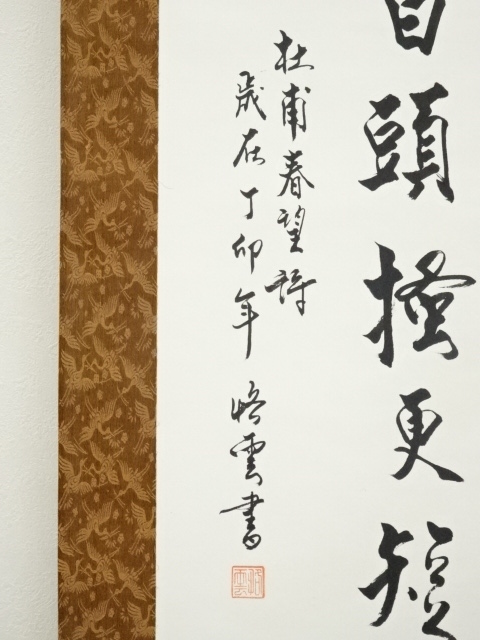 白頭搔更短
杜甫春望詩
歳在丁卯年 悠雲書